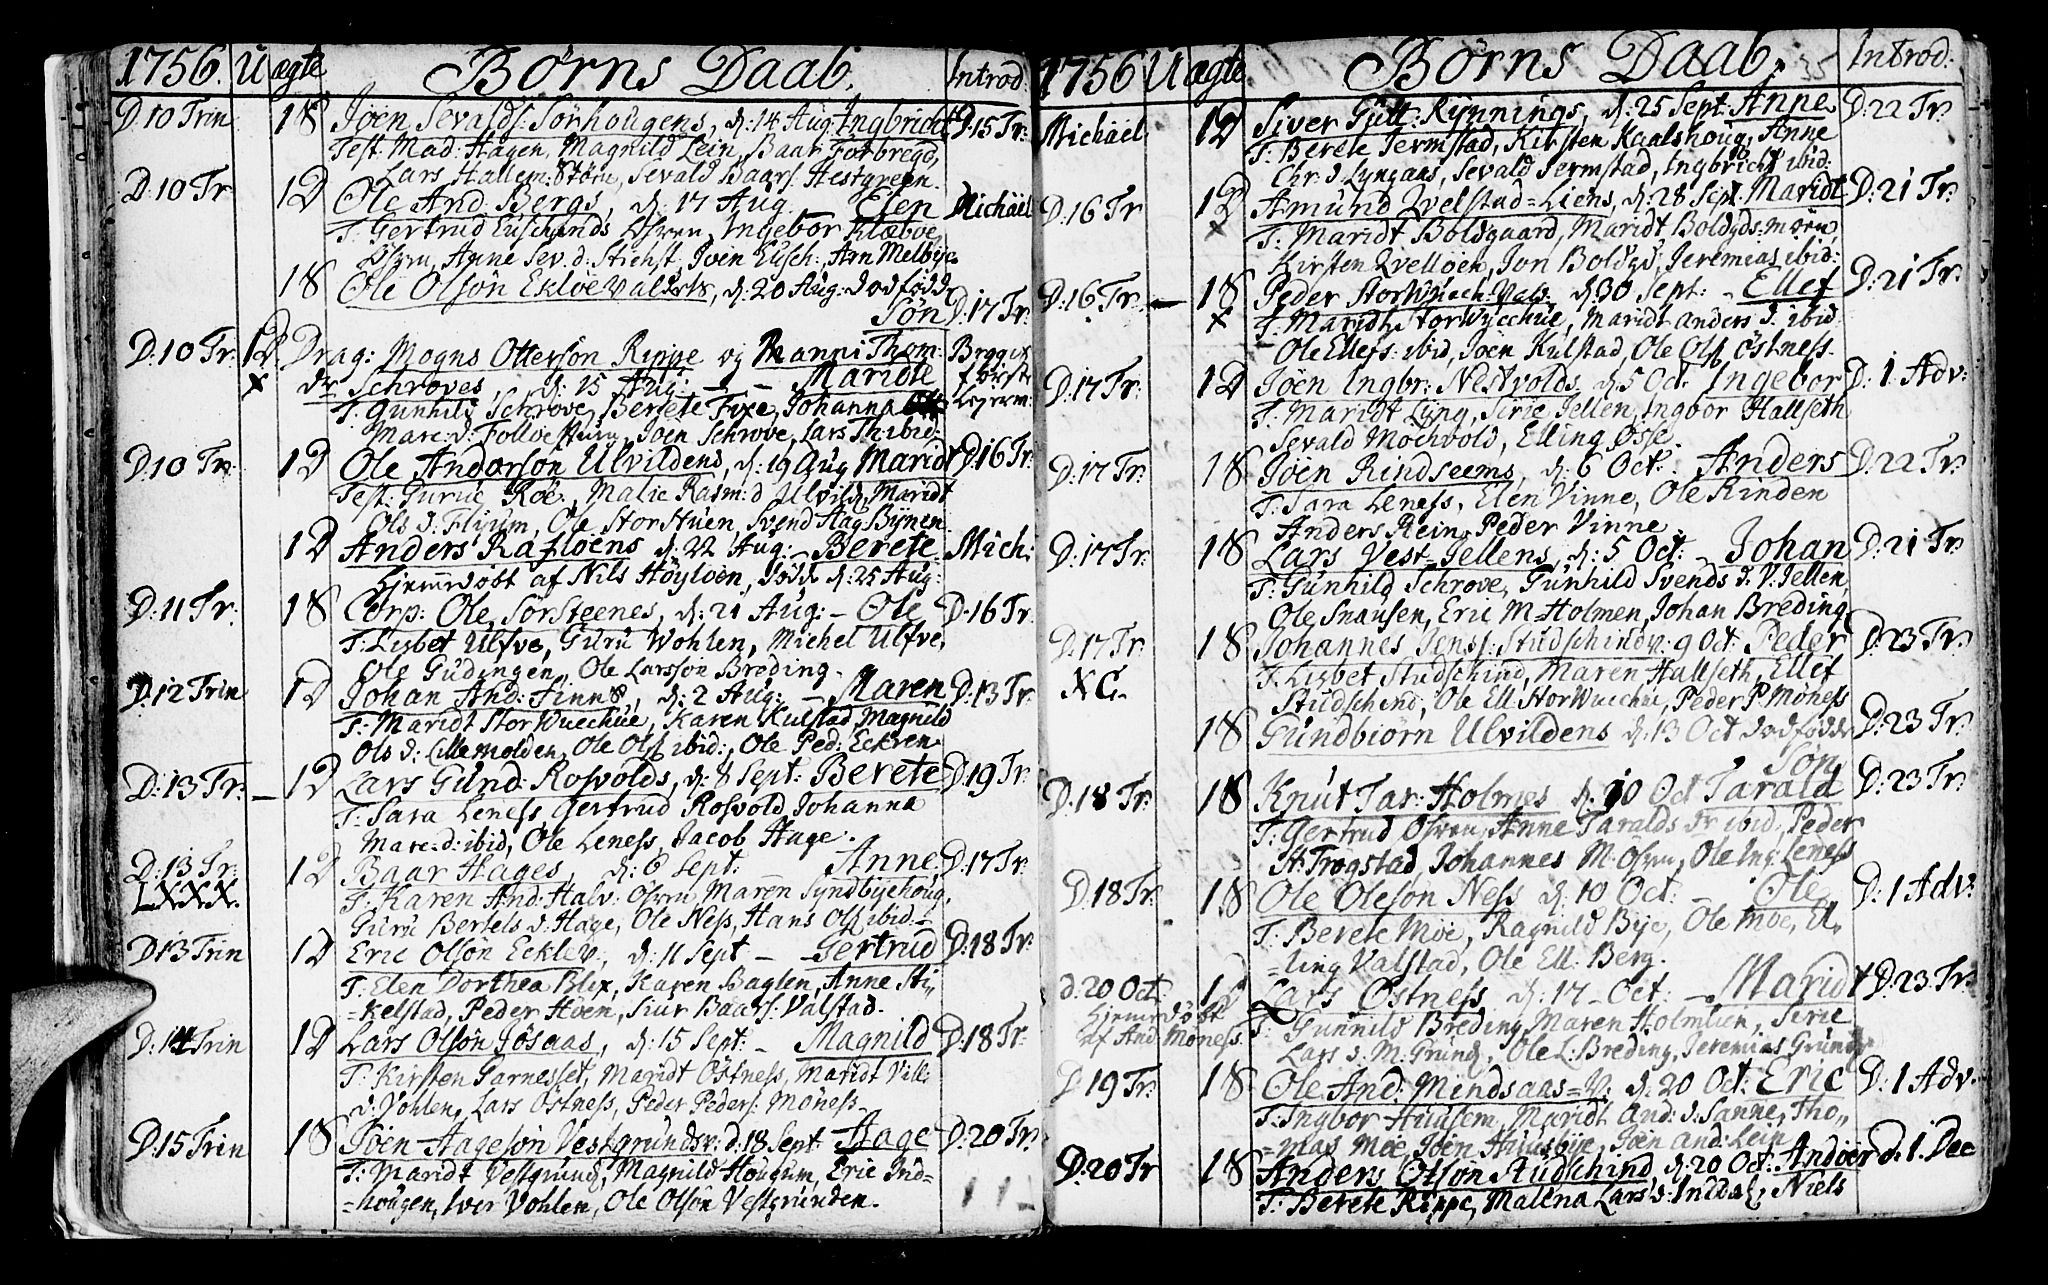 1756. U ægte Børns Daab. Introd.
D. 10 Trin 18 Joen Sevalds: Sørhougens, d: 14 Aug: Ingbricht D. 15 Tr:
Test: Mad: Hagen, Magnild Lein, Baar Forbregd,
Lars Hallem: Støru, Sevald Baars: Hestgreen.
D. 10 Tr 12 Ole And: Bergs, d: 17 Aug. Elen Michäel
T: Gertrud Eüschinds Ofven, Ingebor Klæbve
Anne Sev. d: Stichst, Joen Eüsch: Arn Melbÿe
18 Ole Olsön Ekloevald, d: 20 Aug: dødfødde
Søn D. 17 Tr.
D. 10 Tr. 12 Drag: Mogns Otterson Rippe og Ranni Thom:
dr Schroves, d: 15 Aug: Maridte
T: Gunhild Schrove, Berete Fixe, Johanna
Marc: d: Folloestuen, Joen Schrove, Lars Th ibid:
D. 10 Tr. 12 Ole Anderson Ulvildens, d: 19 Aug Maridt D. 16 Tr:
Test: Guruc Röe, Malie Rasm: d Ulvild, Maridt
Ols d: Flyum, Ole Storstuen, Svend Aag Bÿnen
12 Anders Rafloens d: 22 Aug: Berete Mich:
Hjemmedøbt af Nils Höÿloen, døde d: 25 Aug:
D. 11 Tr. 18 Corp: Ole Sörsteenes, d: 21 Aug: Ole D. 16 Tr
T: Lisbet Ulfve, Guru Wohlen, Michel Ulfve,
Ole Gudingen, Ole Larsson Breding.
D. 12 Trin 12 Johan And: Finne, d: 2 Aug: Maren D. 13 Tr
T: Maridt StorWuechue, Karen Kulstad, Magnild
Ols d: Lillemolden, Ole Ols ibid:, Ole Ped: Eckren
D. 13 Tr. 12 Lars Gund: Rosvolds, d: 8 Sept: Berete D. 19 Tr.
T: Sara Leness, Gertrud Rosvold, Johanna
Marc: d: ibid, Ole Leness, Jacob Hage.
D. 13 Tr. 12 Baar Hages, d: 6 Sept: Anne D. 17 Tr.
LXXX. T: Karen And: Halv: Ofven, Maren Sÿndbÿehoug,
Guru Bertels d: Hage, Ole Ness, Hans Ols ibid:
D 13 Trin 12 Eric Olsön Eckler, d: 11 Sept Gertrud D. 18 Tr.
T: Elen Dorthea Blix, Karen Baglen, Anne Sti-
=kelstad, Peder Höen, Siur Baars: Valstad.
D. 14 Trin 12 Lars Olsön Jösaas, d: 15 Sept: Magnild D. 18 Tr.
T: Kirsten Garnesset, Maridt Östness, Maridt Vill:
d: Vohlen, Lars Östness, Peder Peders: Möness
D. 15 Trin 18 Joen Aageson Vestgrundsv: d: 18 Sept Aage D. 20 Tr.
T: Maridt Vestgrund, Magnild Hougum, Eric Ind=
=hougen, Iver Vohlen, Ole Olsön Vestgrunden.
1756 U ægte Børns Daab. 35 Introd:
Michäel 12 Siver Gutt: Rÿnnings, d: 25 Sept: Anne D. 22 Tr.
T: Berete Jermstad, Kirsten Kaalshoug, Anne
Chr: d Lÿngaas, Sevald Jermstad, Ingbricht ibid:
D. 16 Tr 12 Amund Qvelstad=Liens, d: 28 Sept. Maridt D. 21 Tr.
T: Maridt Boldgaard, Maridt Boldgds:moen,
Kirsten Qvelloen, Jon Boldgd, Jeremias ibid:
D. 16 Tr. 18 Peder StorWuech: Vald: d: 30 Sept: Ellef D. 21 Tr.
T: Maridt StorWuechue, Maridt Anders d. ibid:
Ole Ellefs: ibid, Joen Kulstad, Ole Ols Östness.
D. 17 Tr. 12 Joen Ingbr: Nestvolds, d: 5 Oct: Ingebor D. 1. Adv:
T: Maridt Lÿng, Sirie Jellen, Ingbor Hallseth
Sevald Mochvold, Elling Össe.
D. 17 Tr. 18 Joen Rindseems, d: 6 Oct: Anders D. 22 Tr.
T: Sara Leness, Elen Vinne, Ole Rinden
Anders Rein, Peder Vinne
D. 17 Tr. 18 Lars Vest-Jellens, d: 5 Oct: Johan D. 21 Tr.
T: Gunhild Schrove, Gunhild Svends d: V: Jellen,
Ole Snausen, Eric M=Holmen, Johan Breding
D. 17 Tr 18 Johannes Jens: Studschindv: 9 Oct: Peder D. 23 Tr.
XC. T: Lisbet Studschind, Maren Hallseth, Ellef
Studschind, Ole Ell: StorWuechue, Peder P. Möness
18 Gundbiörn Ulvildens d: 13 Oct dødfødde D: 23 Tr.
Søn
D. 18 Tr. 18 Knut Tar: Holmes d: 10 Oct Tarald D. 23 Tr.
T: Gertrud Ofven, Anne Taralds dr ibid, Peder
A: Trogstad, Johannes M: Ofven, Ole Ing: Leness
D. 18 Tr. 18 Ole Oleson Ness d: 10 Oct: Ole D: 1 Adv:
T: Berete Möe, Ragnild Bÿe, Ole Möe, El-
=ling Valstad, Ole Ell: Berg.
d. 20 Oct. 12 Lars Östness, d: 17 Oct: Maridt D. 23 Tr.
Hjemedøbt T: Gunnild Breding, Maren Holmlien, Sirie
af And: Möness. Lars d: M. Grund, Ole L: Breding, Jeremias Grund
D. 19 Tr. 18 Ole And: Mindsaas=V. d: 20 Oct: Eric D: 1 Adv.
T: Ingbor Huusem, Maridt And: d: Sanne, Tho-
=mas Moe, Joen Huusbÿe, Joen And: Lein
D. 20 Tr 18 Anders Olson Studschind d: 20 Oct: Andöer d. 1. Dec
T: Berete Rippe, Malena Lars d: Inddal, Niels